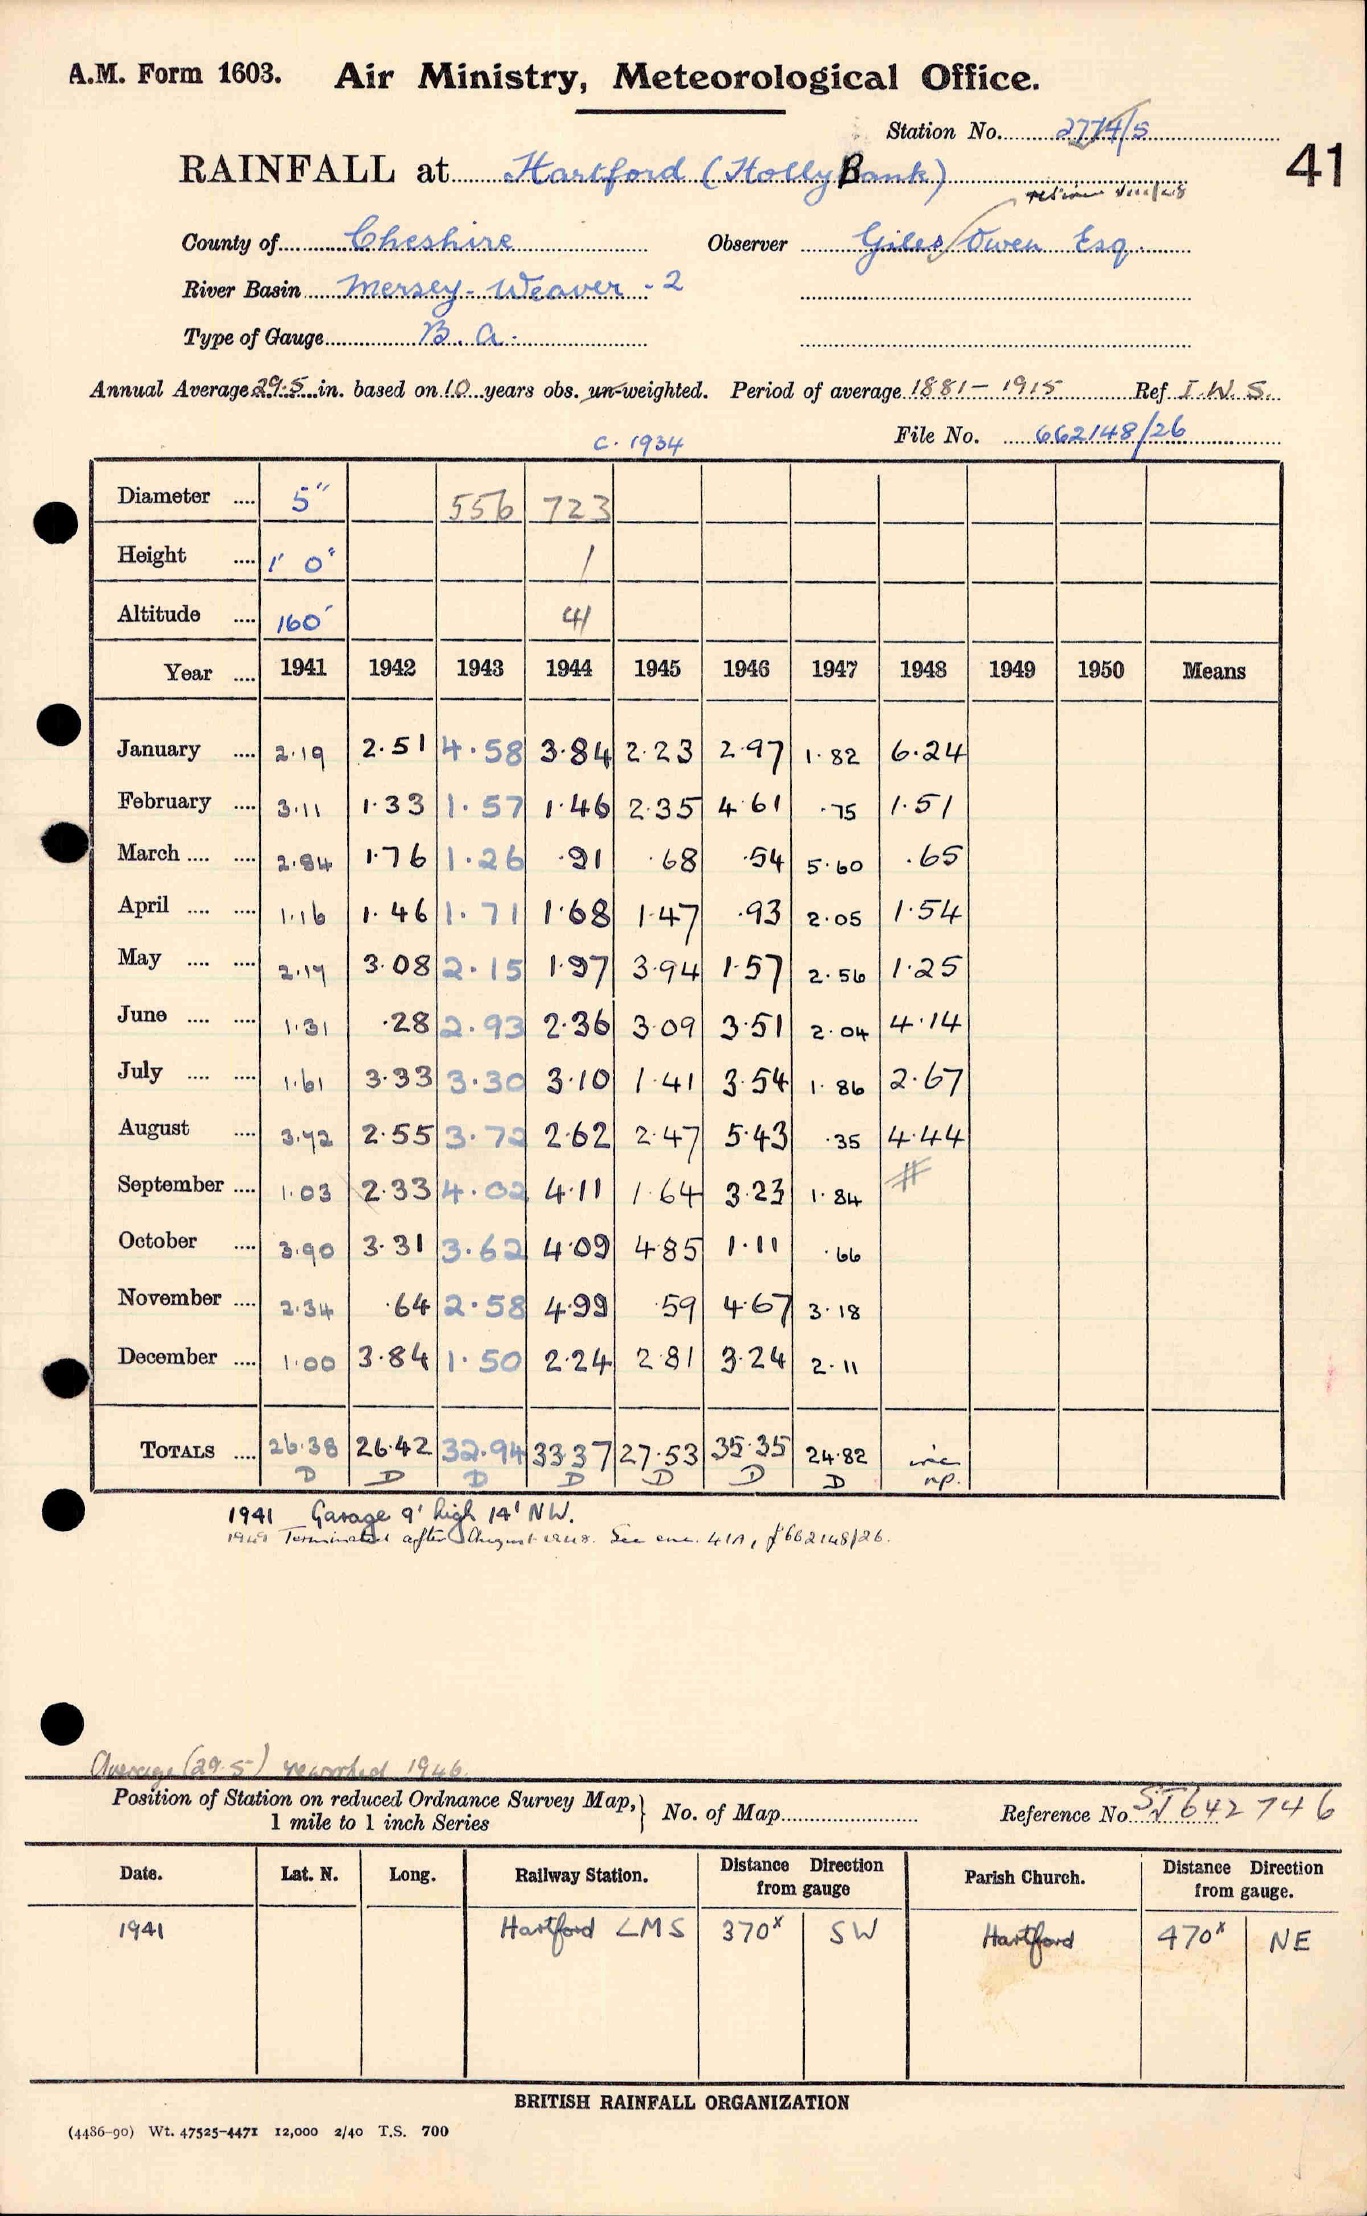 A.M. Form 1603. Air Ministry, Meteorological Office.
Station No. 2774/5
41
RAINFALL at Hartford (Holly Bank)
County of Cheshire Observer Giles Owen Esq.
River Basin Mersey - Weaver - 2
Type of Gauge B. A.
Annual Average 29.5 in. based on 10 years obs. un-weighted. Period of average 1881 - 1915 Ref I.W.S.
c. 1934 File No. 662148/26
Diameter .... 5" 556 723
Height .... 1' 0" 1
Altitude .... 160' 41
Year .... 1941 1942 1943 1944 1945 1946 1947 1948 1949 1950 Means
January .... 2.19 2.51 4.58 3.84 2.23 2.97 1.82 6.24
February .... 3.11 1.33 1.57 1.46 2.35 4.61 .75 1.51
March .... .... 2.84 1.76 1.26 .91 .68 .54 5.60 .65
April .... .... 1.16 1.46 1.71 1.68 1.47 .93 2.05 1.54
May .... .... 2.17 3.08 2.15 1.97 3.94 1.57 2.56 1.25
June .... .... 1.31 .28 2.93 2.36 3.09 3.51 2.04 4.14
July .... .... 1.61 3.33 3.30 3.10 1.41 3.54 1.86 2.67
August .... 3.72 2.55 3.72 2.62 2.47 5.43 .35 4.44
September .... 1.03 2.33 4.02 4.11 1.64 3.23 1.84 #
October .... 3.90 3.31 3.62 4.09 4.85 1.11 .66
November .... 2.34 .64 2.58 4.99 .59 4.67 3.18
December .... 1.00 3.84 1.50 2.24 2.81 3.24 2.11
TOTALS .... 26.38 26.42 32.94 33.37 27.53 35.35 24.82 inc
D D D D D D D np.
1941 Garage 9' high 14' NW.
Terminated after August 1948. See enc. 41A, f 662148/26.
Average (29.5) reworked 1946.
Position of Station on reduced Ordnance Survey Map, } No. of Map Reference No SJ 642 746
1 mile to 1 inch Series
Date. Lat. N. Long. Railway Station. Distance from gauge Direction Parish Church. Distance from gauge. Direction
1941 Hartford LMS 370x SW Hartford 470x NE
BRITISH RAINFALL ORGANIZATION
(4486-90) Wt. 47525-4471 12,000 2/40 T.S. 700